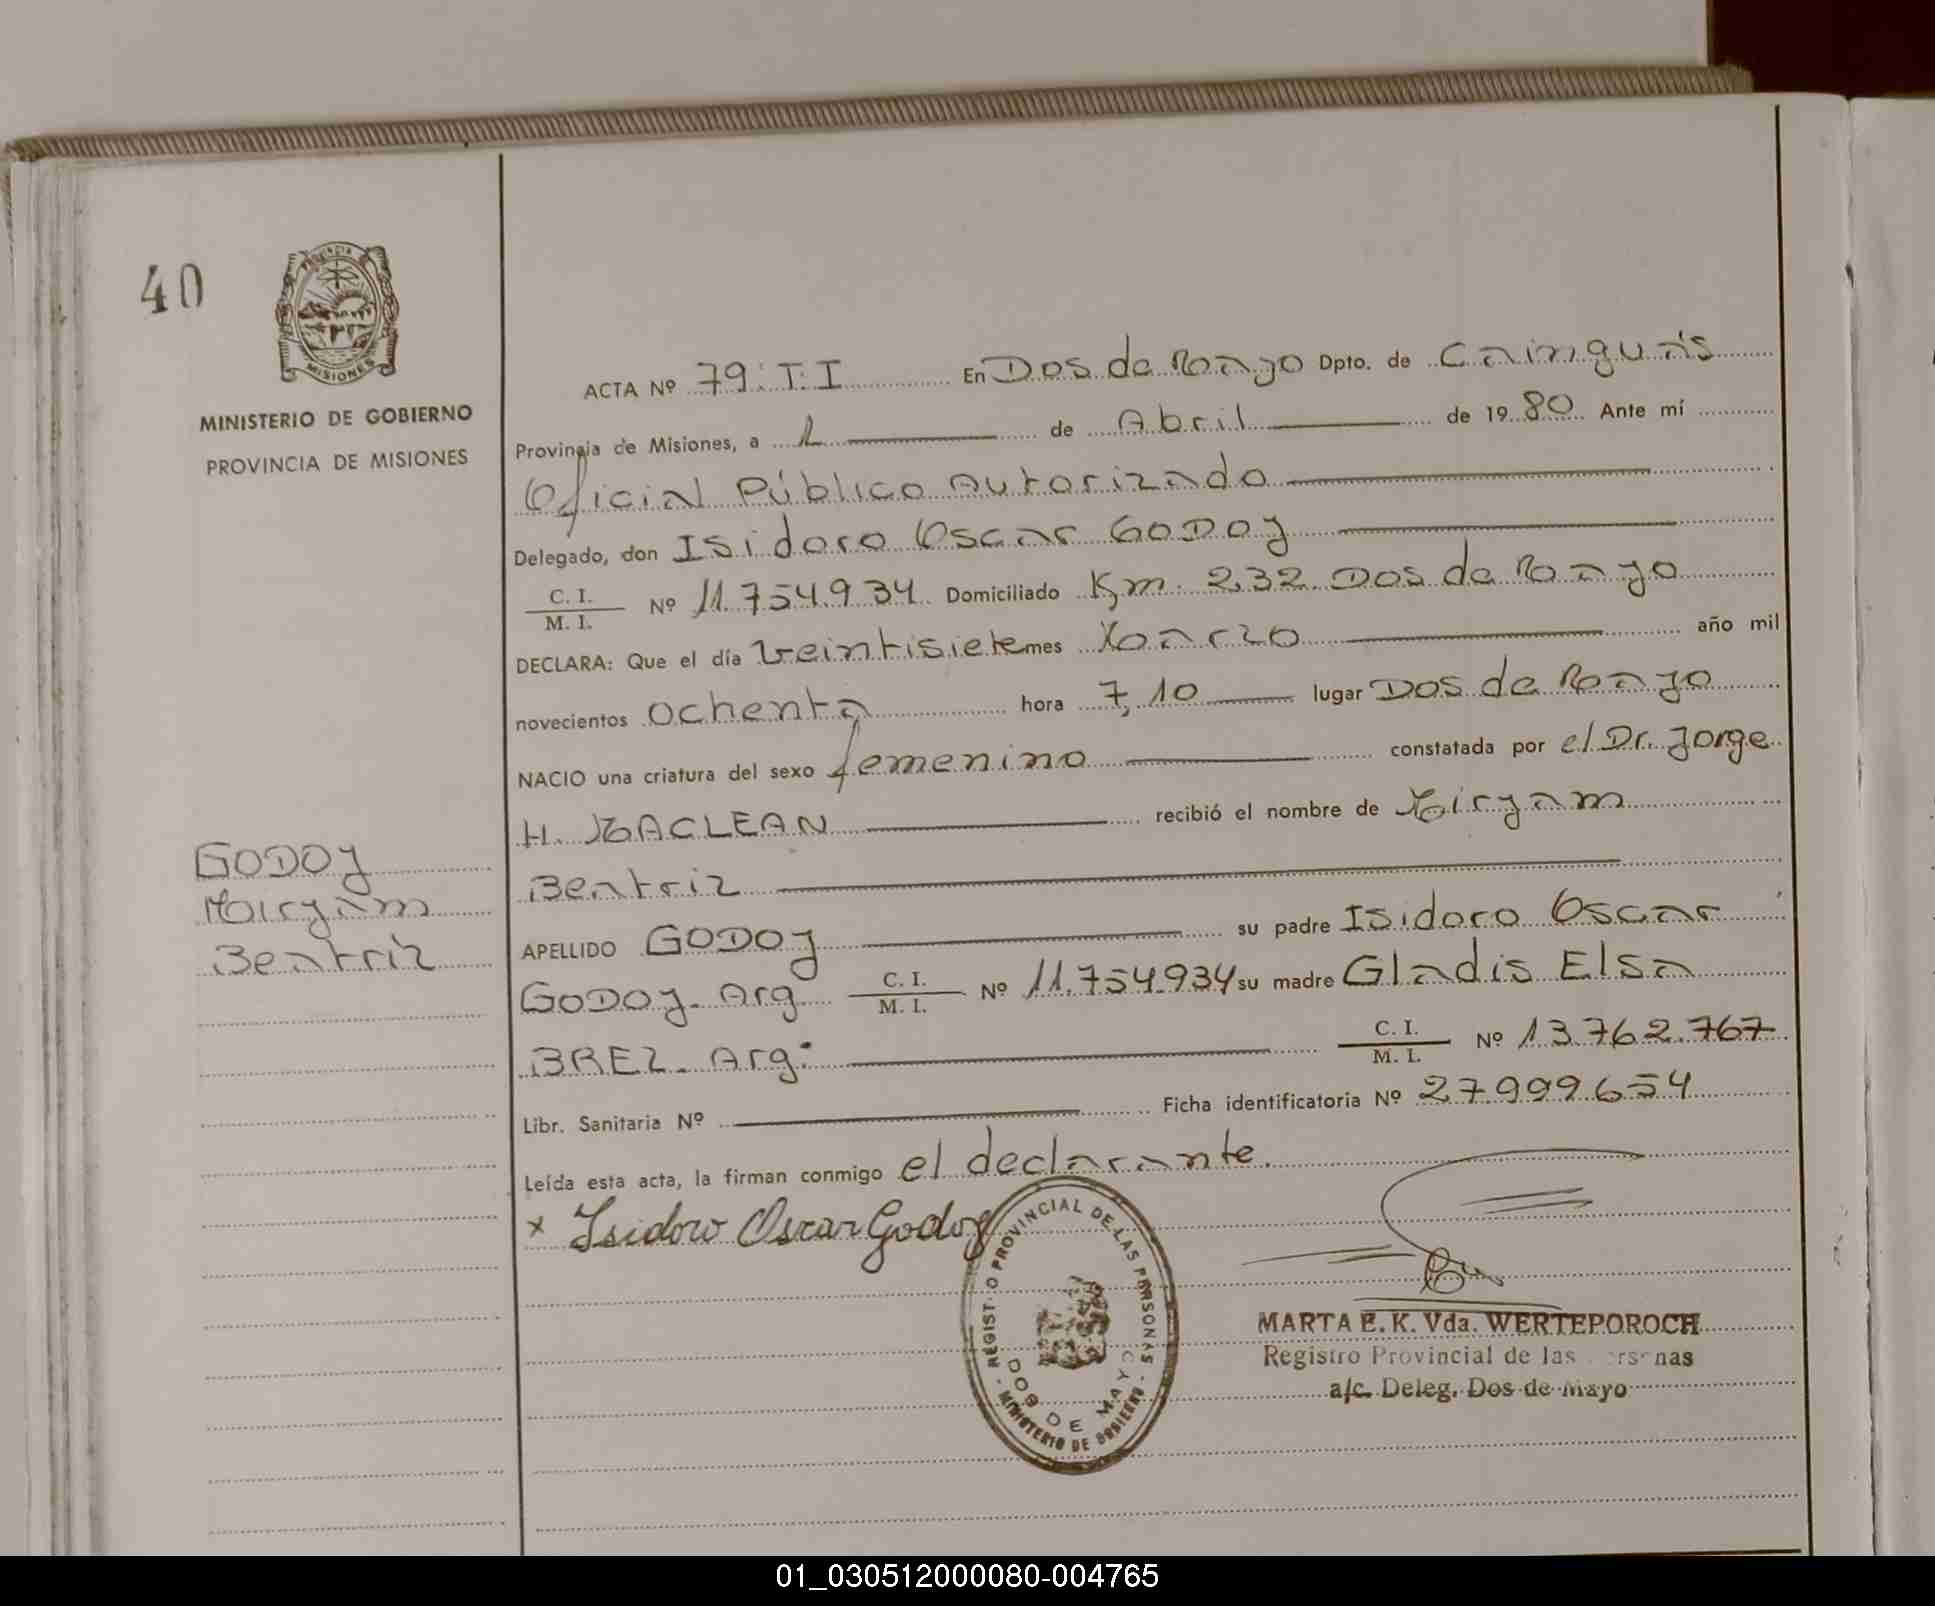 40
PROVINCIA
MISIONES
MINISTERIO DE GOBIERNO
PROVINCIA DE MISIONES
ACTA Nº 79. T. I En Dos de Mayo Dpto. de Cainguás
Provincia de Misiones, a 1 de Abril de 1980 Ante mí
Oficial Público Autorizado
Delegado, don Isidoro Oscar GODOY
C. I.
M. I. Nº 11.754.934 Domiciliado Km. 232 Dos de Mayo
DECLARA: Que el día veintisiete mes Marzo año mil
novecientos ochenta hora 7,10 lugar Dos de Mayo
NACIO una criatura del sexo femenino constatada por el Dr. Jorge
H. MACLEAN recibió el nombre de Miryam
Beatriz
APELLIDO GODOY su padre Isidoro Oscar
GODOY. Arg C. I. M. I. Nº 11.754.934 su madre Gladis Elsa
BREZ. Arg. C. I. M. I. Nº 13.762.767
Libr. Sanitaria Nº Ficha identificatoria Nº 27999654
Leída esta acta, la firman conmigo el declarante.
x Isidoro Oscar Godoy
GODOY
Miryam
Beatriz
REGISTRO PROVINCIAL DE LAS PERSONAS
DOS DE MAYO
- MINISTERIO DE GOBIERNO -
MARTA E. K. Vda. WERTEPOROCH
Registro Provincial de las Personas
a/c. Deleg. Dos de Mayo
01_030512000080-004765